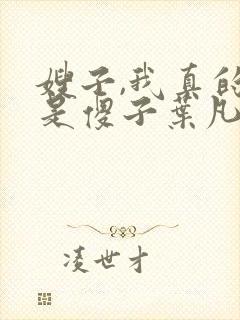 嫂子,我真的
是傻子葉凡
凌世才